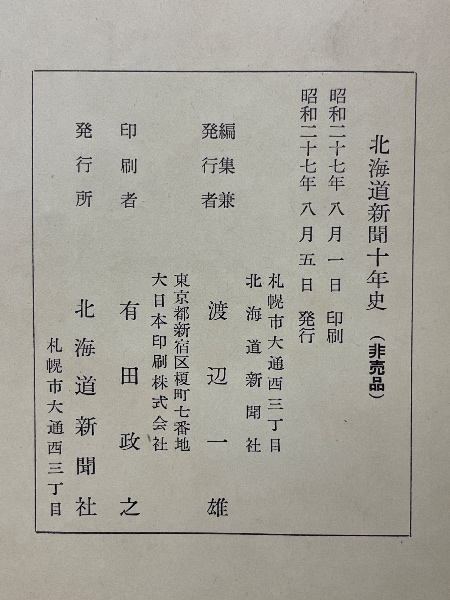 北海道新聞十年史　(非売品)
昭和二十七年八月一日　印刷
昭和二十七年八月五日　発行
札幌市大通西三丁目
北海道新聞社
編集兼
発行者　渡辺一雄
東京都新宿区榎町七番地
大日本印刷株式会社
印刷者　有田政之
発行所　北海道新聞社
札幌市大通西三丁目